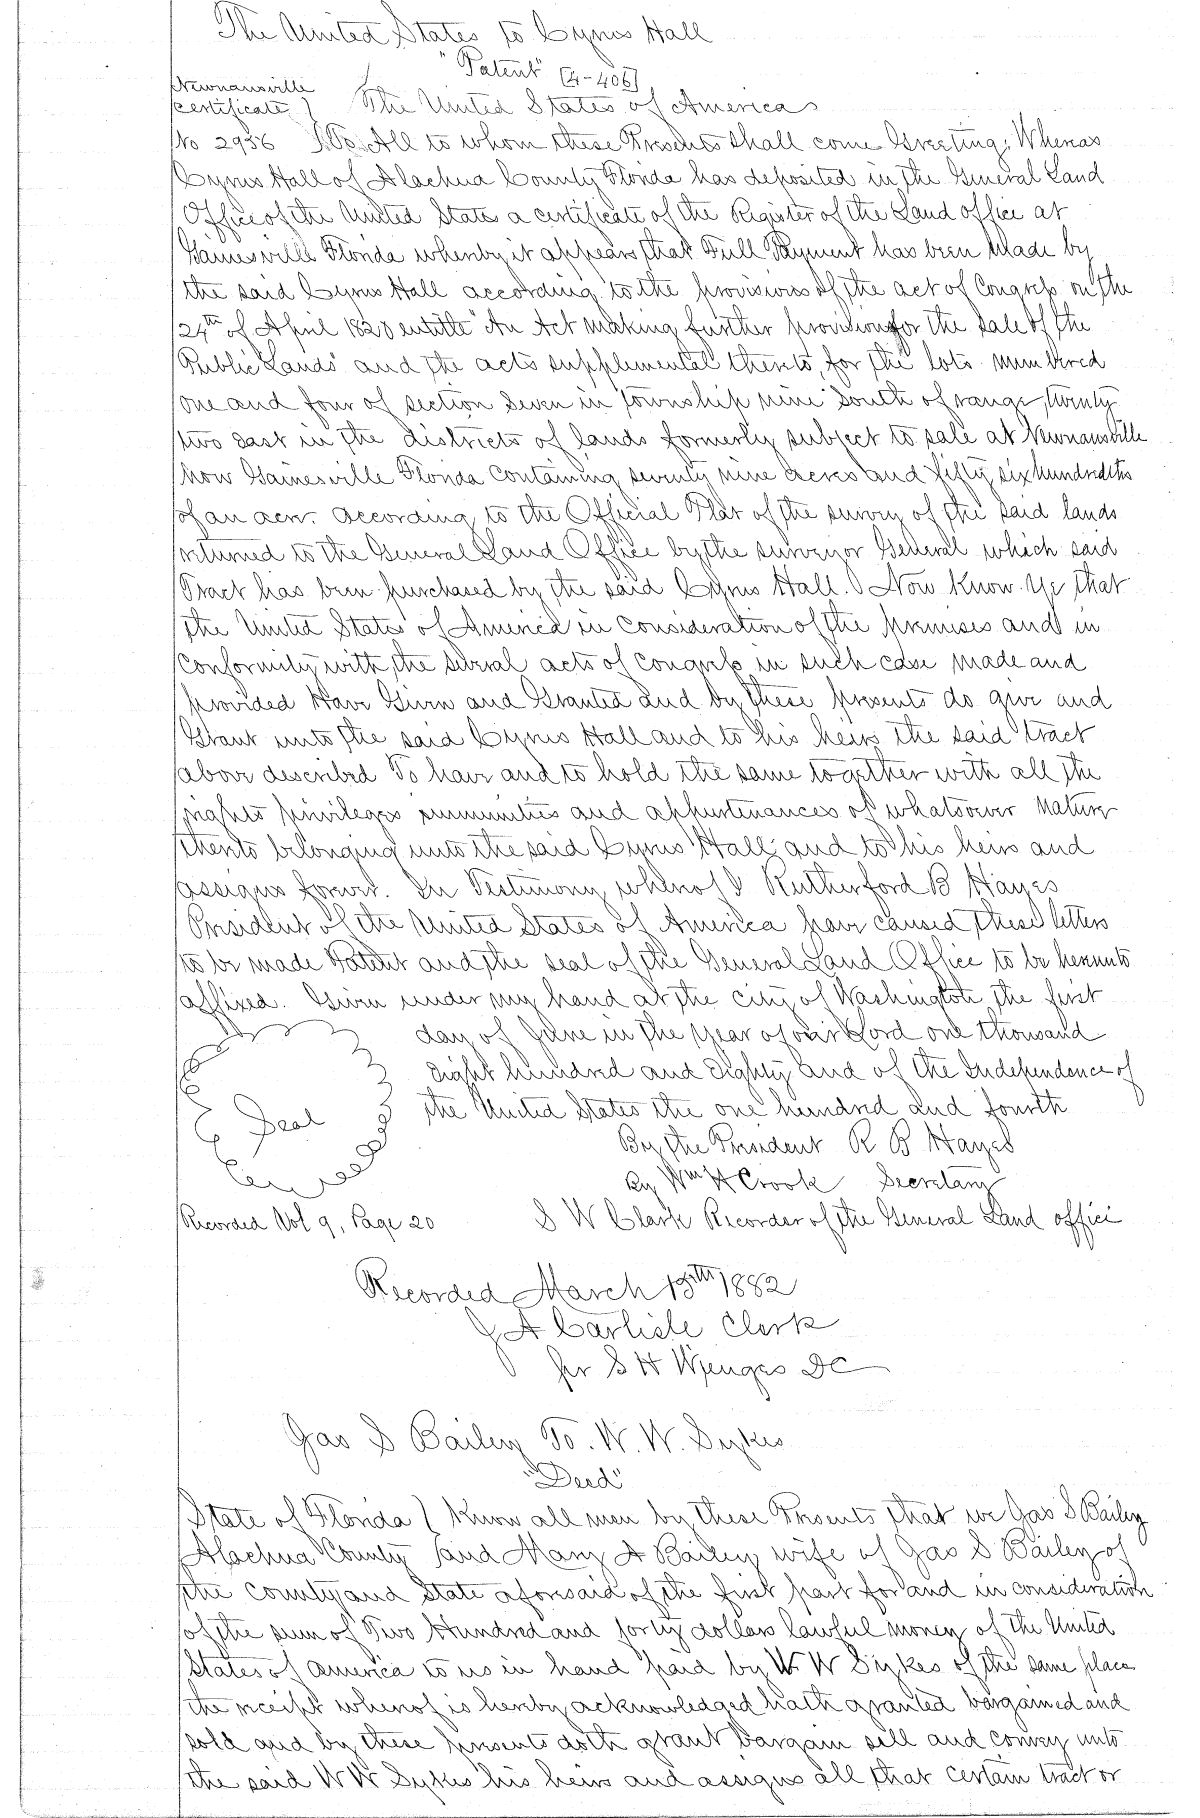 The United States to Cyrus Hall
"Patent" [4-406]
Newnansville
certificate } The United States of America
No 2956 } To All to whom these Presents shall come Greeting; Whereas
Cyrus Hall of Alachua County Florida has deposited in the General Land
Office of the United States a certificate of the Register of the Land office at
Gainesville Florida whereby it appears that Full Payment has been made by
the said Cyrus Hall according to the provisions of the act of Congress on the
24th of April 1820 entitle "An Act making further provisions for the sale of the
Public Lands" and the acts supplemental thereto, for the lots numbered
one and four of section seven in township nine south of range twenty
two east in the districts of lands formerly subject to sale at Newnansville
now Gainesville Florida containing seventy nine acres and fifty six hundredths
of an acre. according to the Official Plat of the survey of the said lands
returned to the General Land Office by the surveyor General which said
Tract has been purchased by the said Cyrus Hall. Now Know Ye that
the United States of America in consideration of the premises and in
conformity with the several acts of Congress in such case made and
provided Have Given and Granted and by these presents do give and
Grant unto the said Cyrus Hall and to his heirs the said tract
above described To have and to hold the same together with all the
rights privileges immunities and appurtenances of whatsoever nature
thereto belonging unto the said Cyrus Hall and to his heirs and
assigns forever. In Testimony whereof I Rutherford B Hayes
President of the United States of America have caused these letters
to be made Patent and the seal of the General Land Office to be hereunto
affixed. Given under my hand at the city of Washington the first
day of June in the year of our Lord one thousand
eight hundred and Eighty and of the Independence of
Seal the United States the one hundred and fourth
By the President R B Hayes
By Wm H Crook Secretary
Recorded Vol 9, Page 20 S W Clark Recorder of the General Land office
Recorded March 13th 1882
J A Carlisle Clerk
per S H Wienges DC
Jas S Bailey To. W. W. Sykes
"Deed"
State of Florida { Know all men by these Presents that we Jas S Bailey
Alachua County { and Mary A Bailey wife of Jas S Bailey of
the County and State aforesaid of the first part for and in consideration
of the sum of Two Hundred and forty dollars lawful money of the United
States of America to us in hand paid by W W Sykes of the same place
the receipt whereof is hereby acknowledged hath granted bargained and
sold and by these presents doth grant bargain sell and convey unto
the said W W Sykes his heirs and assigns all that certain tract or